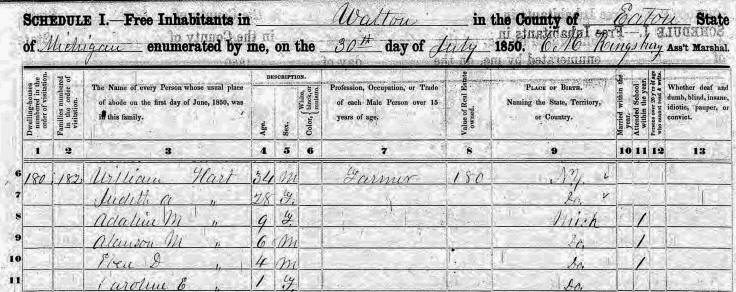 SCHEDULE I.—Free Inhabitants in Walton in the County of Eaton State
of Michigan enumerated by me, on the 30th day of July 1850. Ass't Marshal.
Dwelling-houses numbered in the order of visitation. Families numbered in the order of visitation. The Name of every Person whose usual place of abode on the first day of June, 1850, was in this family. DESCRIPTION. Age. Sex. Color, White, black, or mulatto. Profession, Occupation, or Trade of each Male Person over 15 years of age. Value of Real Estate owned. PLACE OF BIRTH. Naming the State, Territory, or Country. Married within the year. Attended School within the year. Persons over 20 y'rs of age who cannot read & write. Whether deaf and dumb, blind, insane, idiotic, pauper, or convict.
1 2 3 4 5 6 7 8 9 10 11 12 13
6 180 182 William Hart 34 M Farmer 180 N.Y.
7 Judith A " 28 F. Do.
8 Adaline M " 9 F. Mich 1
9 Alanson M " 6 M Do. 1
10 D " 4 M Do. 1
11 Caroline E " 1 F. Do.